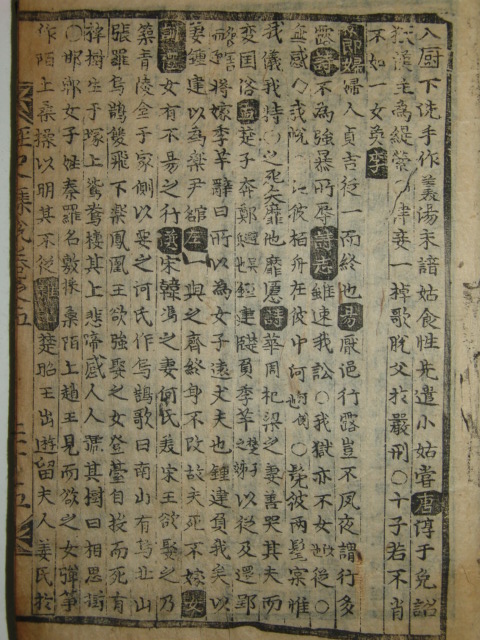 入廚下洗手作羹湯未諳姑食性先遣小姑嘗唐淳于免詔
獄漢主為緹縈 津妾一棹歌脫父於嚴刑〇十子若不肖
不如一女英李
節婦婦人貞吉從一而終也易厭浥行露豈不夙夜謂行多
露詩不為強暴所辱詩志雖速我訟〇我獄亦不女從〇
彼柏舟在彼中河 髧彼兩髦實惟
我儀我特 之死矢靡他靡慝詩華周杞梁之妻善哭其夫而
變國俗孟楚子奔鄭 鍾建負季羋 以從及還郢
將嫁季羋辭曰所以為女子遠丈夫也鍾建負我矣以
妻鍾建以為樂尹 左一與之齊終身不改故夫死不嫁
女有不易之行 宋韓馮之妻何氏美宋王欲娶之乃
築青陵 于家側以 之何氏作烏鵲歌曰南山有烏北山
張羅烏鵲雙飛下樂鳳凰王欲強娶之女登臺自投而死有
梓樹生于塚上鴛鴦棲其上悲啼感人人 其樹曰相思樹
〇邯鄲女子姓秦羅名敷採桑陌上趙王見而欲之女彈箏
作陌上桑操以明其不從 楚昭王出遊留夫人姜氏於